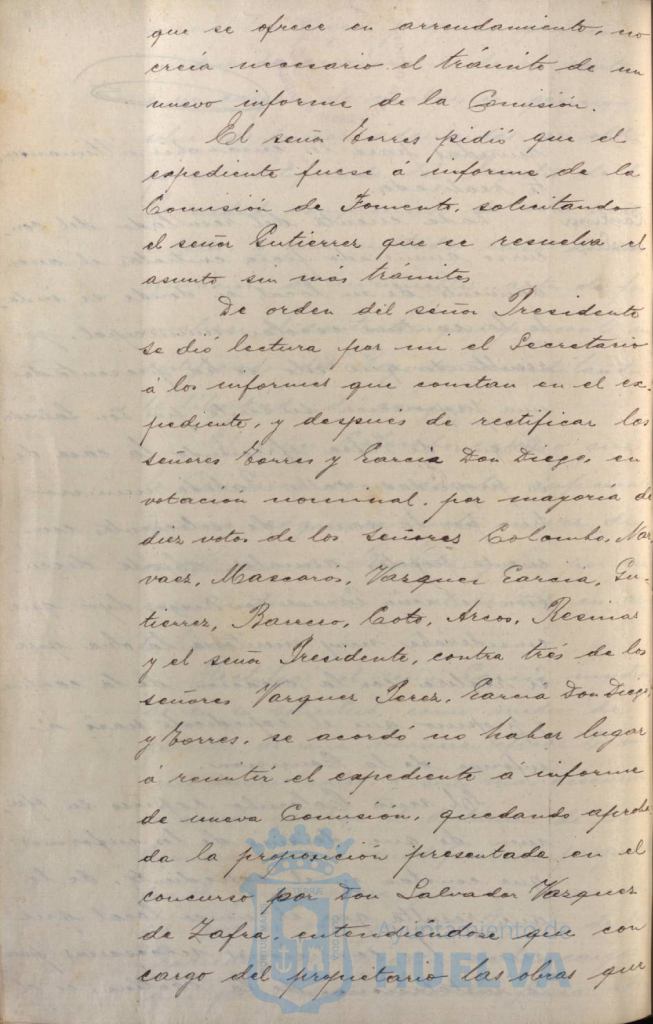 que se ofrece en arrendamiento, no
creía necesario el trámite de un
nuevo informe de la Comisión.
El señor Torres pidió que el
expediente fuese á informe de la
Comisión de Fomento, solicitando
el señor Gutierrez que se resuelva el
asunto sin más trámites
De orden del señor Presidente
se dió lectura por mi el Secretario
á los informes que constan en el ex-
pediente, y después de rectificar los
señores Torres y Garcia Don Diego, en
votación nominal, por mayoría de
diez votos de los señores Colombo, Nar
vaez, Mascarós, Vazquez Garcia, Gu-
tierrez, Barrero, Coto, Arcos,
y el señor Presidente, contra trés de los
señores Vazquez Perez, Garcia Don Diego,
y Torres, se acordó no haber lugar
á remitir el expediente á informe
de nueva Comisión, quedando aproba
da la proposición presentada en el
concurso por Don Salvador Vazquez
de Zafra, entendiéndose que con
cargo del propietario las obras que
Ayuntamiento de
HUELVA